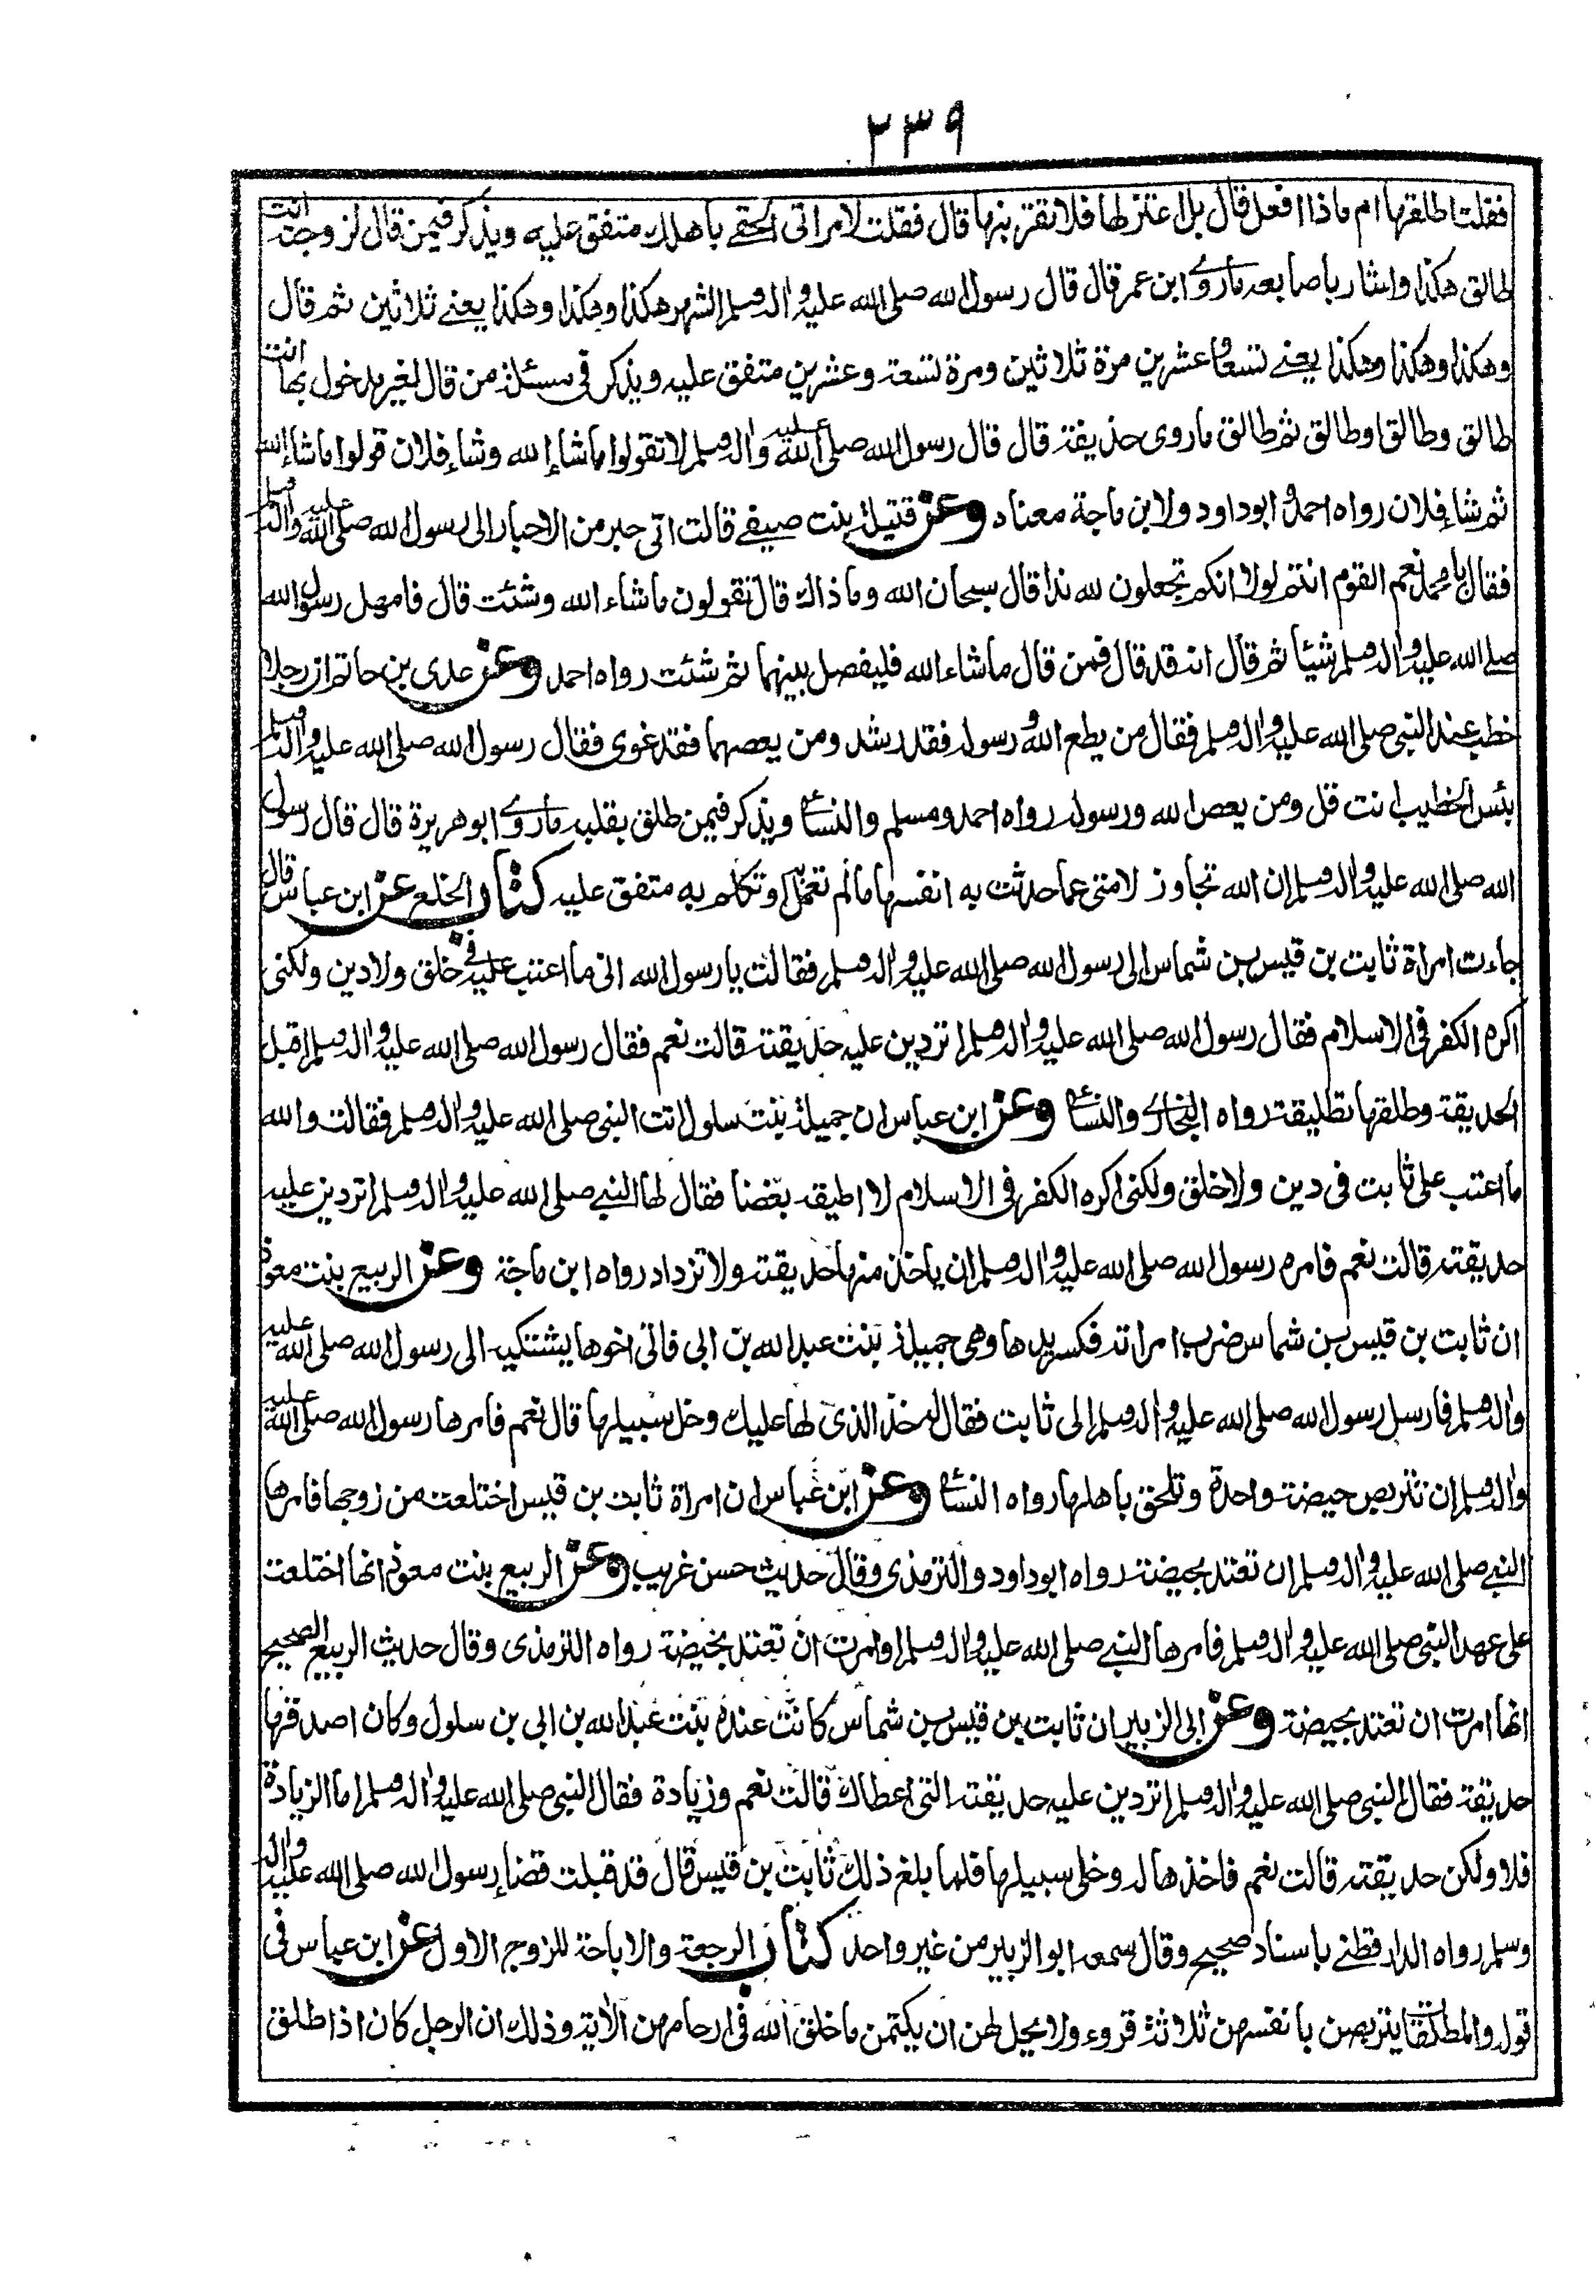 ٢٣٩
فقلت اطلقها ام ماذا افعل قال بل اعتزلها فلا تقربنها قال فقلت لامراتى الحقى باهلك متفق عليه ويذكر فيمن قال لزوجته انت
طالق هكذا واشار باصابعه ماروى ابن عمر قال قال رسول الله صلى الله عليه واله وسلم الشهر هكذا وهكذا وهكذا يعنى ثلاثين ثم قال
وهكذا وهكذا وهكذا يعنى تسعا وعشرين مرة ثلاثين ومرة تسعة وعشرين متفق عليه ويذكر فى مسئلة من قال لغير مدخول بها انت
طالق وطالق اوطالق ثم طالق ماروى حذيفة قال قال رسول الله صلى الله عليه واله وسلم لا تقولوا ماشاء الله وشاء فلان قولوا ماشاء الله
ثم شاء فلان رواه احمد وابوداود ولابن ماجة معناه وعن قتيلة بنت صيفى قالت اتى حبر من الاحبار الى رسول الله صلى الله عليه واله وسلم
فقال يا محمد نعم القوم انتم لولا انكم تجعلون لله ندا قال سبحان الله وما ذاك قال تقولون ماشاء الله وشئت قال فامهل رسول الله
صلى الله عليه واله وسلم شيئا ثم قال انه قد قال فمن قال ماشاء الله فليفصل بينهما ثم شئت رواه احمد وعن عدى بن حاتم ان رجلا
خطب عند النبى صلى الله عليه واله وسلم فقال من يطع الله ورسوله فقد رشد ومن يعصهما فقد غوى فقال رسول الله صلى الله عليه واله وسلم
بئس الخطيب انت قل ومن يعص الله ورسوله رواه احمد ومسلم والنسائى ويذكر فيمن طلق بقلبه ماروى ابوهريرة قال قال رسول
الله صلى الله عليه واله وسلم ان الله تجاوز لامتى عما حدثت به انفسها مالم تعمل به او تكلم به متفق عليه كتاب الخلع عن ابن عباس قال
جاءت امراة ثابت بن قيس بن شماس الى رسول الله صلى الله عليه واله وسلم فقالت يا رسول الله انى ما اعتب عليه فى خلق ولا دين ولكنى
اكره الكفر فى الاسلام فقال رسول الله صلى الله عليه واله وسلم اتردين عليه حديقته قالت نعم فقال رسول الله صلى الله عليه واله وسلم اقبل
الحديقة وطلقها تطليقة رواه البخارى والنسائى وعن ابن عباس ان جميلة بنت سلول اتت النبى صلى الله عليه واله وسلم فقالت والله
ما اعتب على ثابت فى دين ولا خلق ولكنى اكره الكفر فى الاسلام لا اطيقه بغضا فقال لها النبى صلى الله عليه واله وسلم اتردين عليه
حديقته قالت نعم فامره رسول الله صلى الله عليه واله وسلم ان ياخذ منها حديقته ولا تزداد رواه ابن ماجة وعن الربيع بنت معوذ
ان ثابت بن قيس بن شماس ضرب امراته فكسر يدها وهى جميلة بنت عبد الله بن ابى فاتى اخوها يشتكيه الى رسول الله صلى الله عليه
واله وسلم فارسل رسول الله صلى الله عليه واله وسلم الى ثابت فقال له خذ الذى لها عليك وخل سبيلها قال نعم فامرها رسول الله صلى الله عليه
واله وسلم ان تتربص حيضة واحدة وتلحق باهلها رواه النسائى وعن ابن عباس ان امراة ثابت بن قيس اختلعت من زوجها فامرها
النبى صلى الله عليه واله وسلم ان تعتد بحيضة رواه ابوداود والترمذى وقال حديث حسن غريب وعن الربيع بنت معوذ انها اختلعت
على عهد النبى صلى الله عليه واله وسلم فامرها النبى صلى الله عليه واله وسلم او امرت ان تعتد بحيضة رواه الترمذى وقال حديث الربيع الصحيح
انها امرت ان تعتد بحيضة وعن ابى الزبير ان ثابت بن قيس بن شماس كانت عنده بنت عبد الله بن ابى بن سلول وكان اصدقها
حديقة فقال النبى صلى الله عليه واله وسلم اتردين عليه حديقته التى اعطاك قالت نعم وزيادة فقال النبى صلى الله عليه واله وسلم اما الزيادة
فلا ولكن حديقته قالت نعم فاخذها له وخلى سبيلها فلما بلغ ذلك ثابت بن قيس قال قد قبلت قضاء رسول الله صلى الله عليه واله
وسلم رواه الدارقطنى باسناد صحيح وقال سمعه ابو الزبير من غير واحد كتاب الرجعة والاباحة للزوج الاول عن ابن عباس فى
قوله والمطلقات يتربصن بانفسهن ثلاثة قروء ولا يحل لهن ان يكتمن ما خلق الله فى ارحامهن الاية وذلك ان الرجل كان اذا طلق